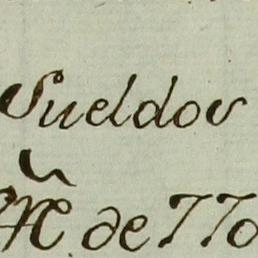 Sueldos
de 770